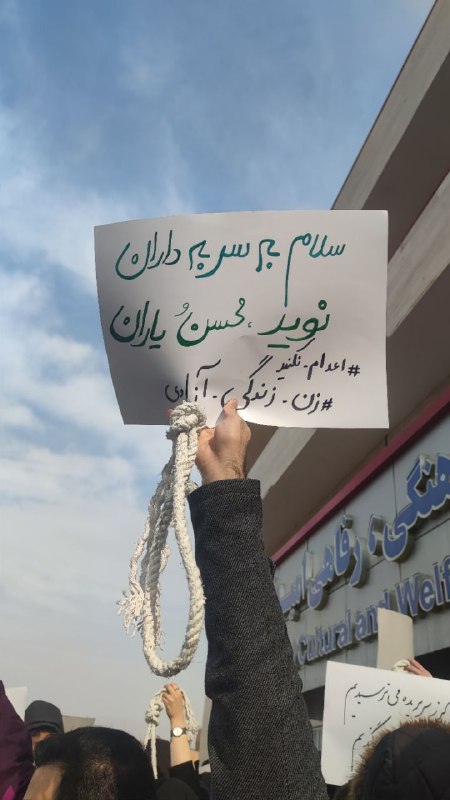 سلام به سر به داران
نوید، محسن و یاران
#اعدام_نکنید
#زن_زندگی_آزادی
هنگی، رفاهی امیر
Cultural and Welf
گر ز سر بریده می‌ترسیدیم